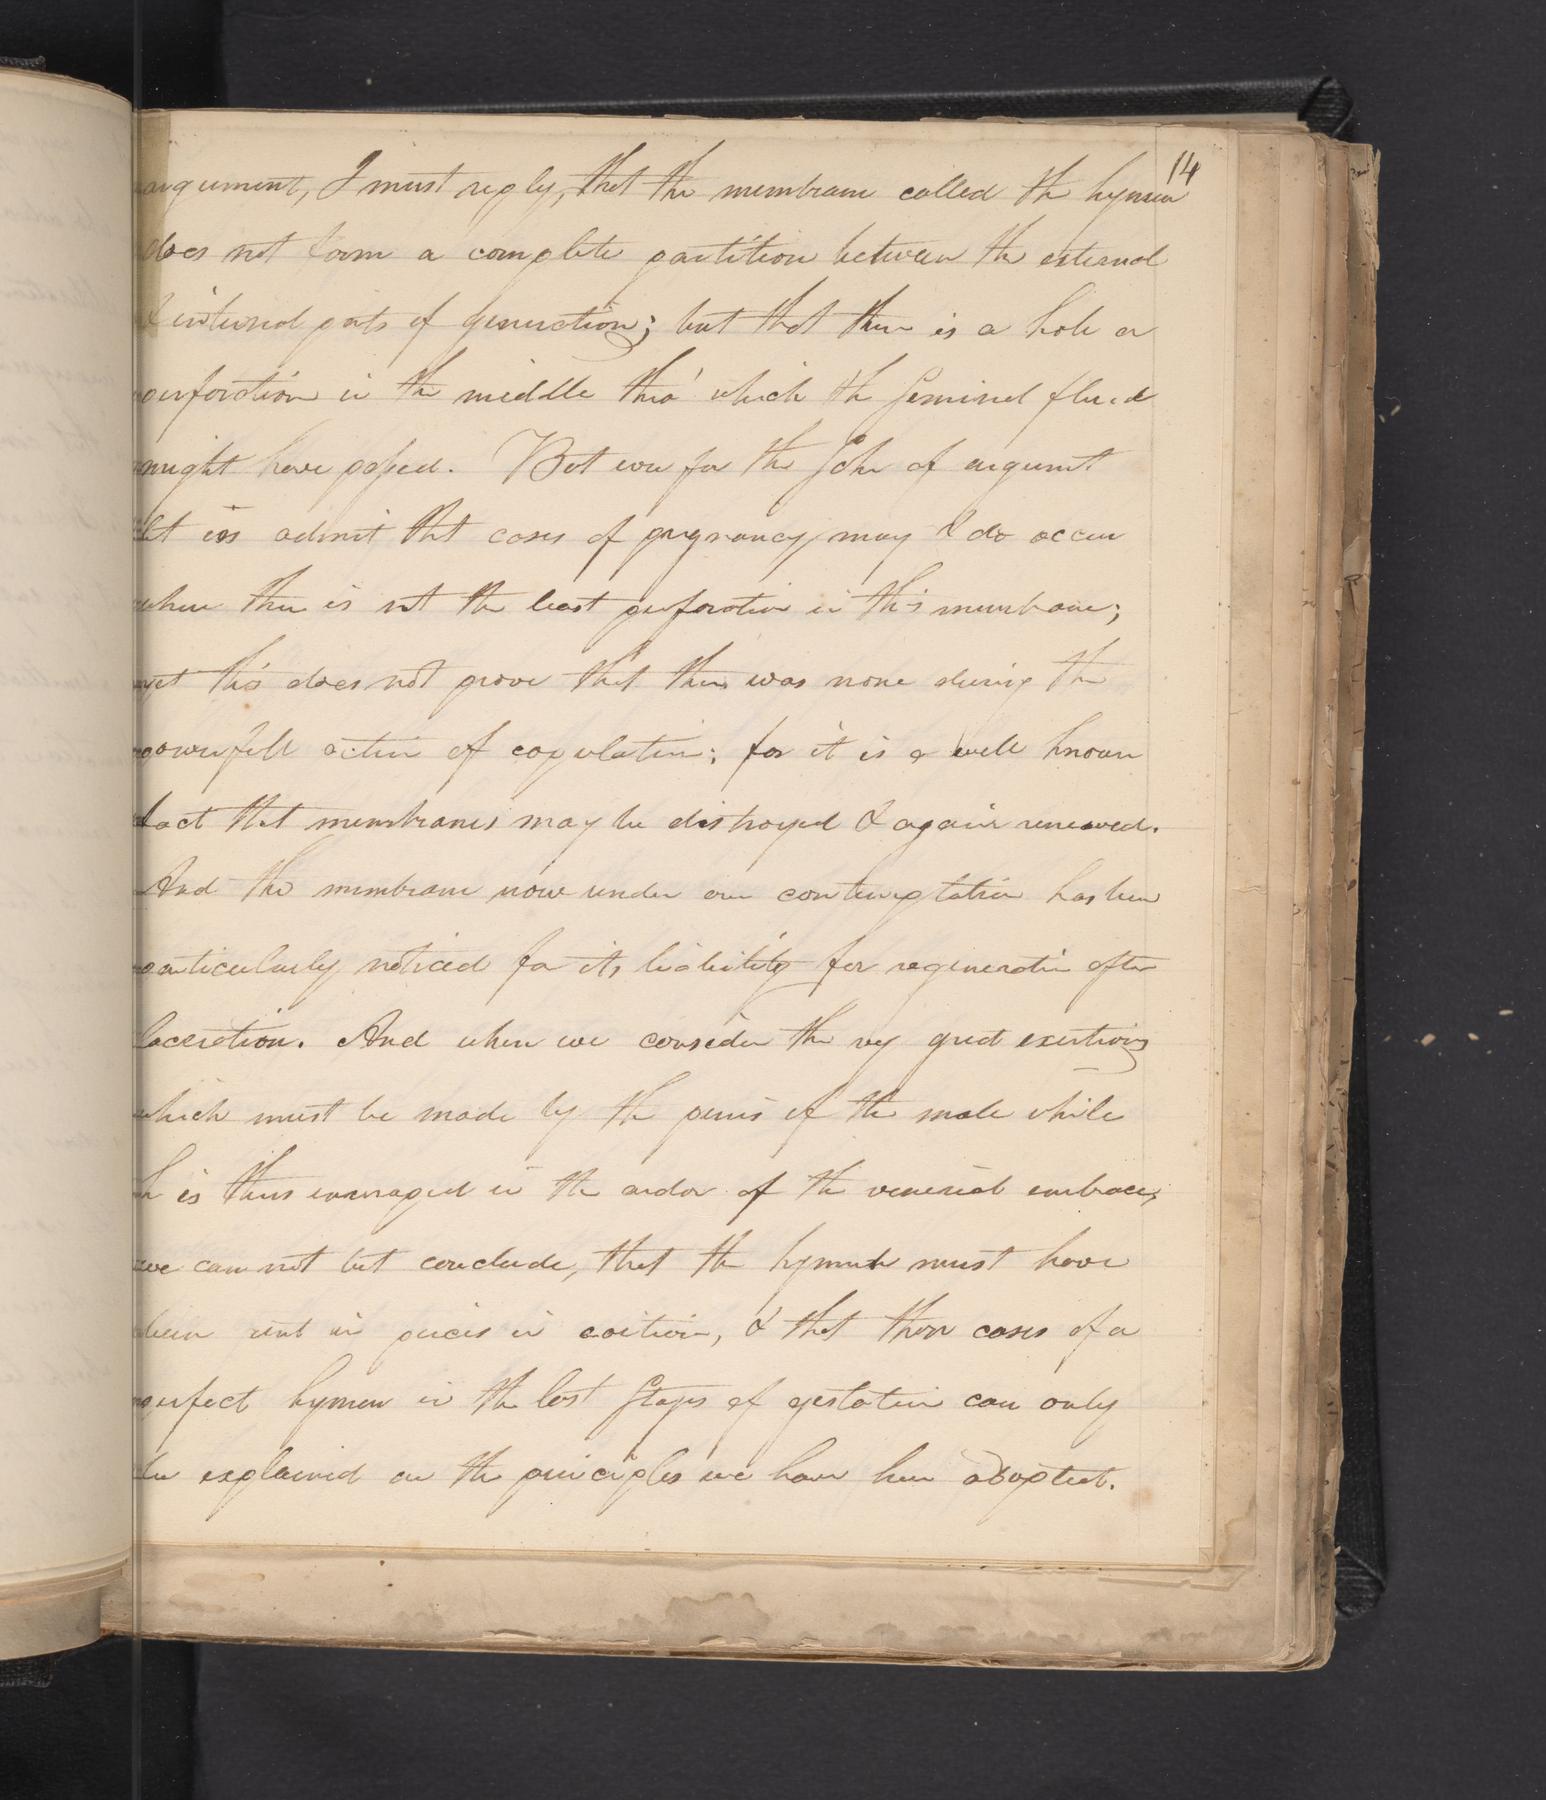 14
argument, I must reply, that the membrane called the hymen
does not form a complete partition between the external
& internal parts of generation; but that there is a hole or
perforation in the middle thro' which the seminal fluid
might have passed. But were for the sake of argument
let us admit that cases of pregnancy may & do occur
where there is not the least perforation in this membrane;
yet this does not prove that there was none during the
powerfull action of copulation; for it is a well known
fact that membranes may be distroyed & again renewed.
And the membrane now under our contemplation has been
particularly noticed for its liability for regeneration after
laceration. And when we consider the very great exertions
which must be made by the penis of the male while
he is thus enwraped in the ardor of the venerial embrace,
we can not but conclude, that the hymen must have
been rent in peices in coition, & that those cases of a
perfect hymen in the last stages of gestation can only
be explained on the principles we have here adopted.